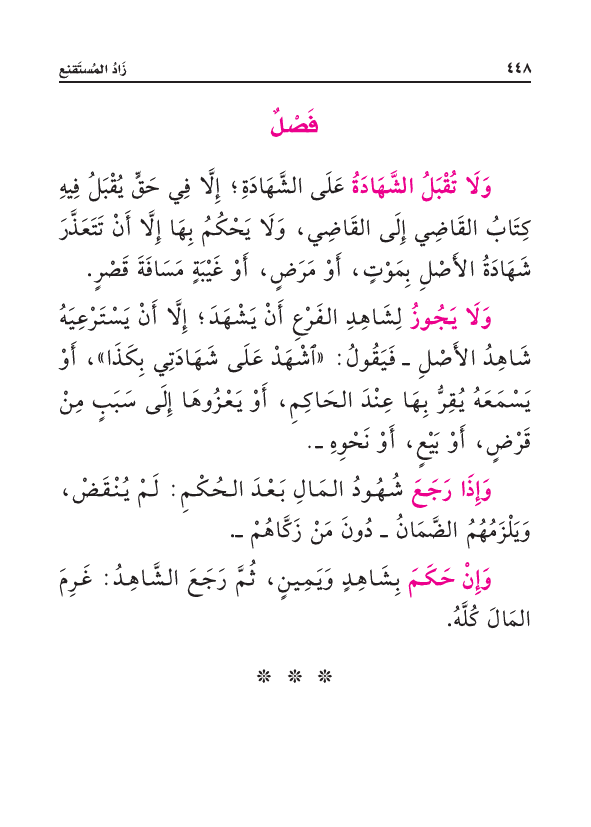 ٤٤٨ زَادُ المُستَقنِع
فَصْلٌ
وَلَا تُقْبَلُ الشَّهَادَةُ عَلَى الشَّهَادَةِ؛ إِلَّا فِي حَقٍّ يُقْبَلُ فِيهِ
كِتَابُ القَاضِي إِلَى القَاضِي، وَلَا يَحْكُمُ بِهَا إِلَّا أَنْ تَتَعَذَّرَ
شَهَادَةُ الأَصْلِ بِمَوْتٍ، أَوْ مَرَضٍ، أَوْ غَيْبَةٍ مَسَافَةَ قَصْرٍ.
وَلَا يَجُوزُ لِشَاهِدِ الفَرْعِ أَنْ يَشْهَدَ؛ إِلَّا أَنْ يَسْتَرْعِيَهُ
شَاهِدُ الأَصْلِ ـ فَيَقُولُ: «ٱشْهَدْ عَلَى شَهَادَتِي بِكَذَا»، أَوْ
يَسْمَعَهُ يُقِرُّ بِهَا عِنْدَ الحَاكِمِ، أَوْ يَعْزُوهَا إِلَى سَبَبٍ مِنْ
قَرْضٍ، أَوْ بَيْعٍ، أَوْ نَحْوِهِ ـ.
وَإِذَا رَجَعَ شُهُودُ المَالِ بَعْدَ الحُكْمِ: لَمْ يُنْقَضْ،
وَيَلْزَمُهُمُ الضَّمَانُ ـ دُونَ مَنْ زَكَّاهُمْ ـ.
وَإِنْ حَكَمَ بِشَاهِدٍ وَيَمِينٍ، ثُمَّ رَجَعَ الشَّاهِدُ: غَرِمَ
المَالَ كُلَّهُ.